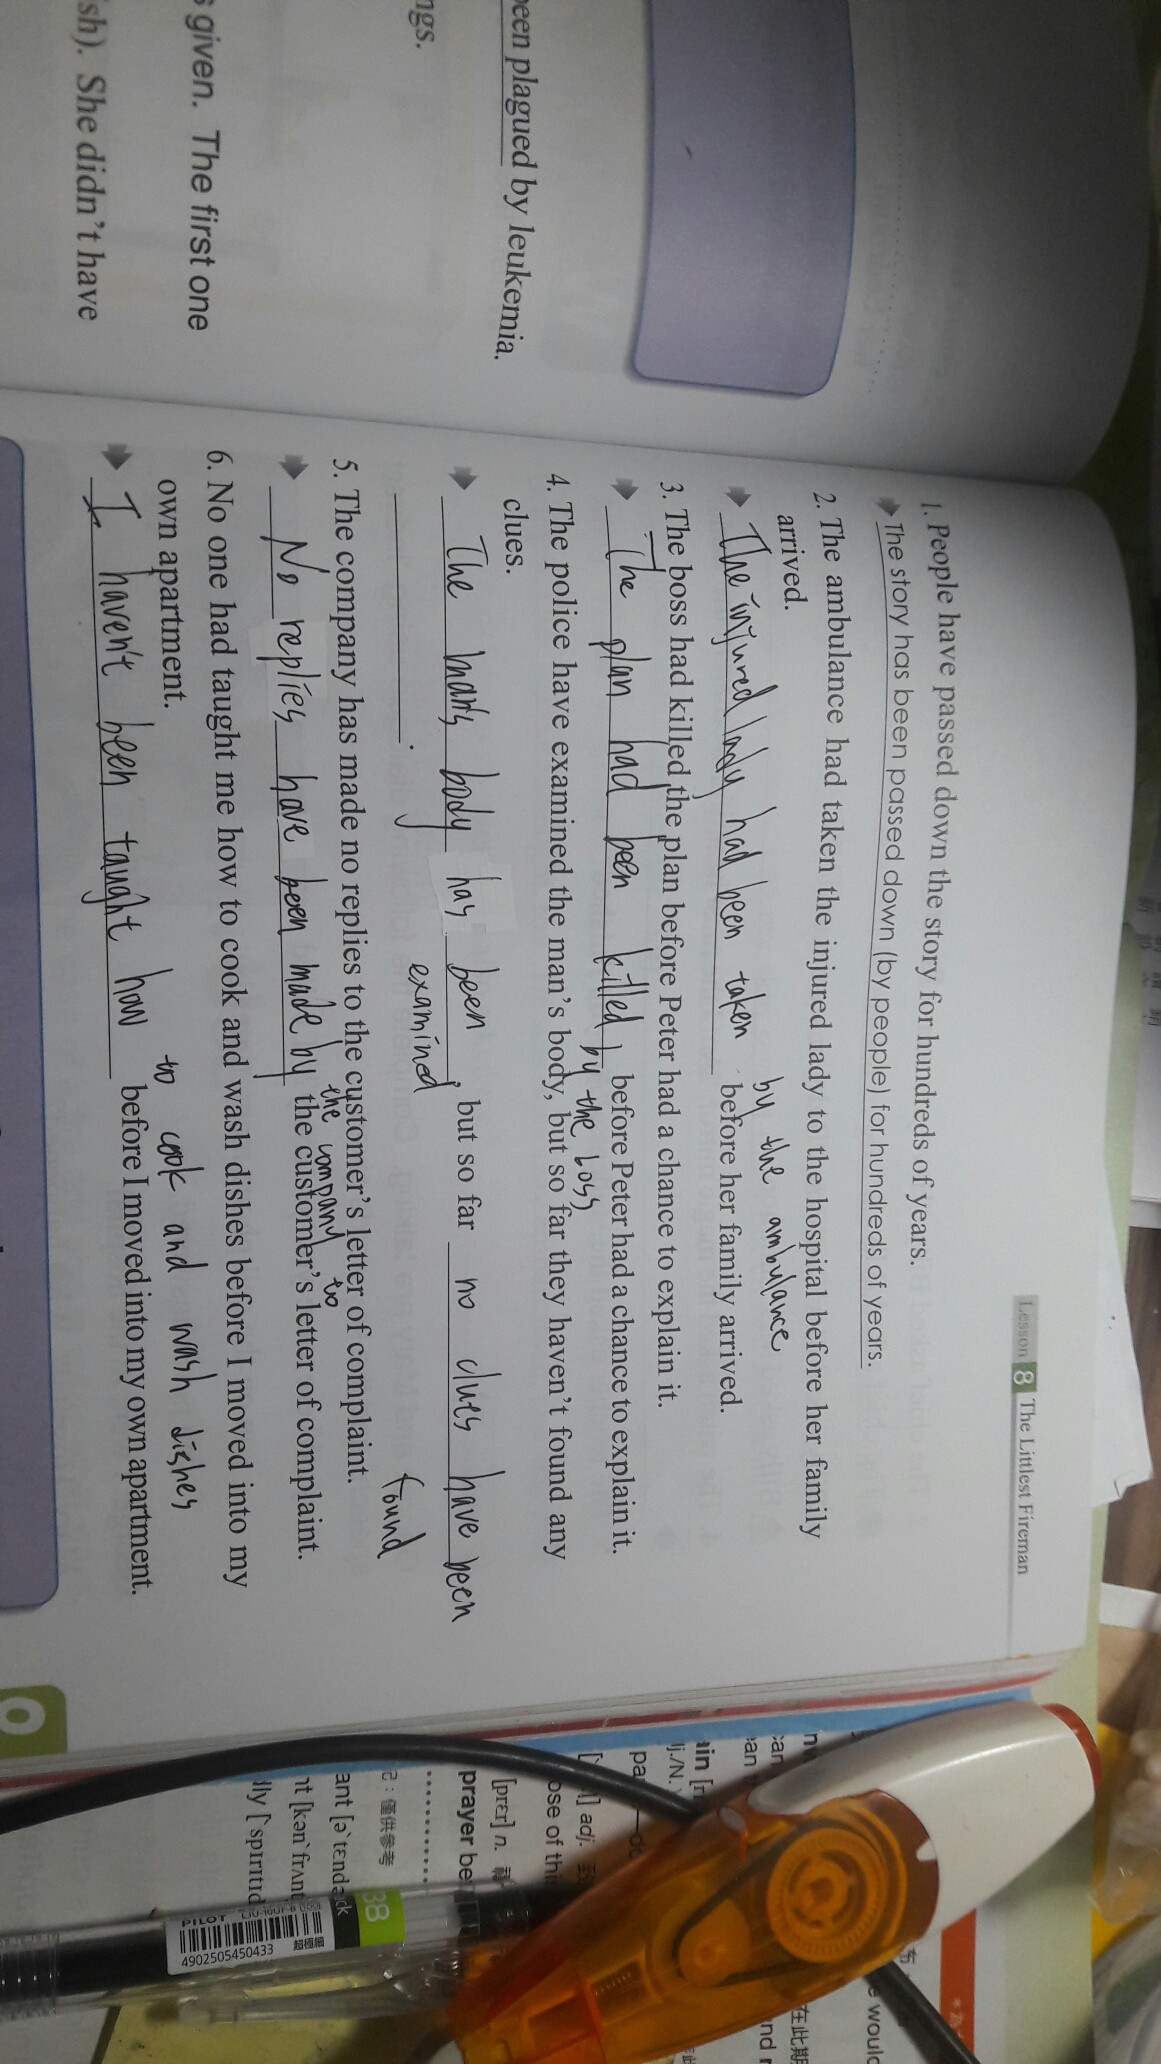 Lesson 8 The Littlest Fireman
1. People have passed down the story for hundreds of years.
The story has been passed down (by people) for hundreds of years.
2. The ambulance had taken the injured lady to the hospital before her family
arrived.
by the ambulance
The injured lady had been taken before her family arrived.
3. The boss had killed the plan before Peter had a chance to explain it.
The plan had been killed, before Peter had a chance to explain it.
by the boss
4. The police have examined the man's body, but so far they haven't found any
clues.
The man's body has been, but so far no clues have been
examined found
5. The company has made no replies to the customer's letter of complaint.
the company to
No replies have been made by the customer's letter of complaint.
6. No one had taught me how to cook and wash dishes before I moved into my
own apartment.
to cook and wash dishes
I haven't been taught how before I moved into my own apartment.
been plagued by leukemia.
ngs.
s given. The first one
sh). She didn't have
would
在此期
nd
ain
adj.
ose of
[prɛr] n.
prayer be
:僅供參考
ant [ə`tɛndə
nt [kən`frʌnt
lly [`spɪrɪtɪd
38
PILOT
4902505450433